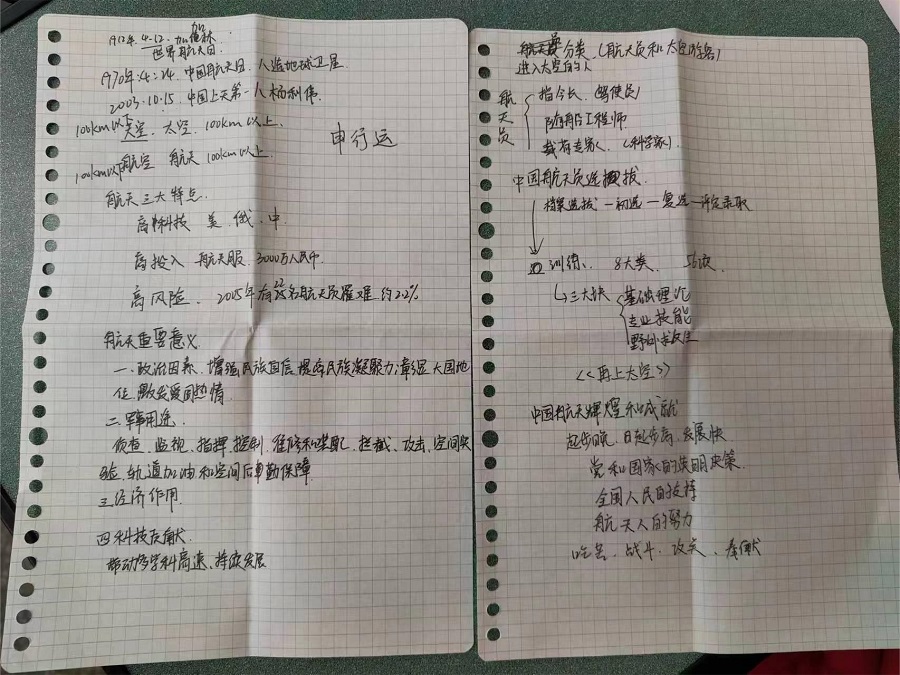 加加林
世界航天日
1970年.4.24. 中国航天日. 人造地球卫星
2003.10.15. 中国上天第一人杨利伟
100km以下天空. 太空. 100km以上.
申行运
100km以下航空 航天 100km以上.
航天三大特点.
高科技 美、俄、中
高投入 航天服. 3000万人民币
高风险. 航天员罹难 约2.2%
航天重要意义.
一. 政治因素. 增强民族自信. 提高民族凝聚力. 彰显大国地
位. 激发爱国热情.
二. 军事用途.
侦查、监视、指挥控制、维修和装配、拦截、攻击、空间实
验、轨道加油和空间后勤保障.
三. 经济作用
四. 科技贡献
带动多学科高速、持续发展
航天员分类. (航天员和太空游客)
进入太空的人
航天员
指令长、驾驶员
随船工程师
载荷专家 (科学家)
中国航天员选拔.
档案选拔—初选—复选—评定录取
训练、 8大类、
三大块
基础理论
专业技能
野外求生
《再上太空》
中国航天辉煌和成就
起步晚、日起步高、发展快
党和国家的英明决策.
全国人民的支持
航天人的努力
吃苦、战斗、攻关、奉献